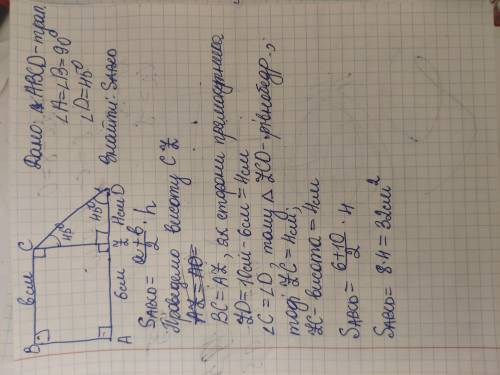 Дано: ABCD-трап.
∠A=∠B=90°
∠D=45°
Знайти: SABCD
B 6см C
45°
45°
A 6см Z 4см D
SABCD = a+b/2 · h
Проводемо висоту CZ
AZ = AD =
BC=AZ, як сторони прямокутника
ZD=10см-6см=4см
∠C=∠D, тому △ZCD-рівнобедр.,
тоді ZC=4см;
ZC-висота=4см
SABCD= 6+10/2 · 4
SABCD= 8·4=32см²